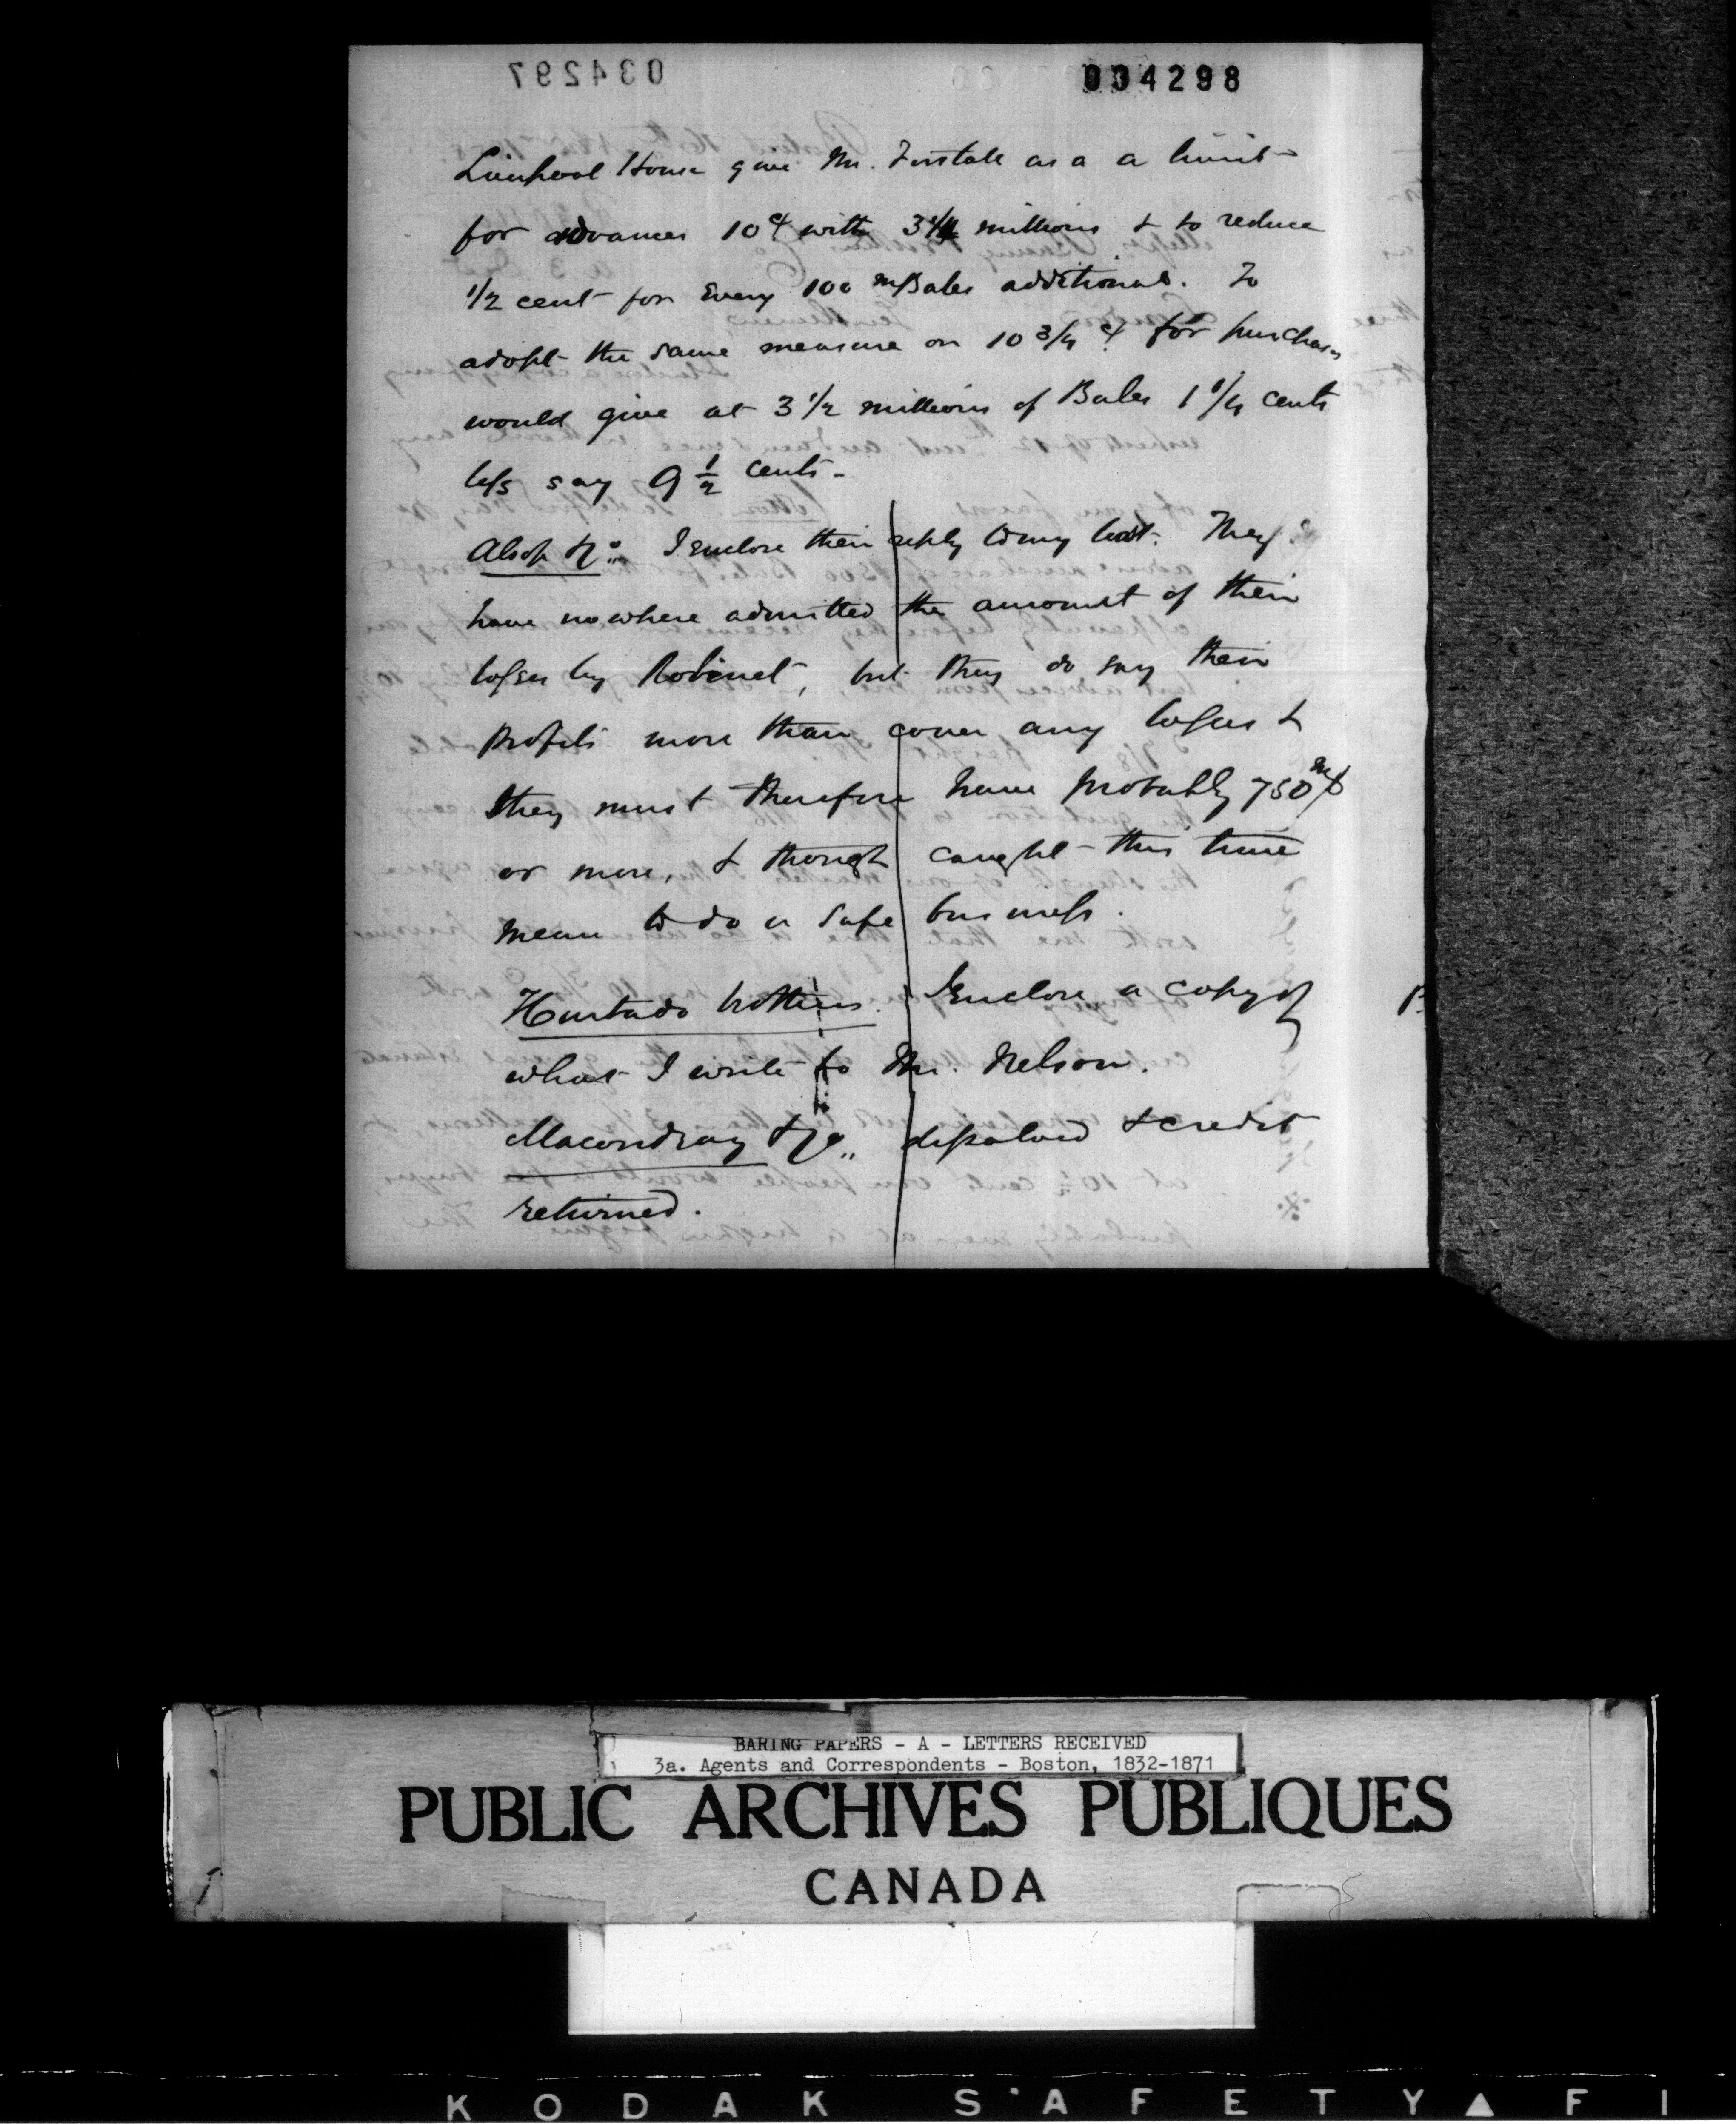 034297
034298
Liverpool House give Mr. Forstall as a a limit
for advances 10 ct with 3 1/4 millions & to reduce
1/2 cent for every 100 m Bales additional. To
adopt the same measure on 10 3/4 ct for purchases
would give at 3 1/2 millions of Bales 1 1/4 cents
less say 9 1/2 cents -
Alsop & Co. I enclose their reply to my last. They
have nowhere admitted the amount of their
losses by Robinet, but they do say their
profits more than cover any losses &
they must therefore have probably 750 m$
or more, & though caught this time
mean to do a safe business.
Hurtado brothers. Enclose a copy of
what I write to Mr. Nelson.
Macondray & Co. dissolved & credit
returned.
BARING PAPERS - A - LETTERS RECEIVED
3a. Agents and Correspondents - Boston, 1832-1871
PUBLIC ARCHIVES PUBLIQUES
CANADA
KODAK SAFETY FI